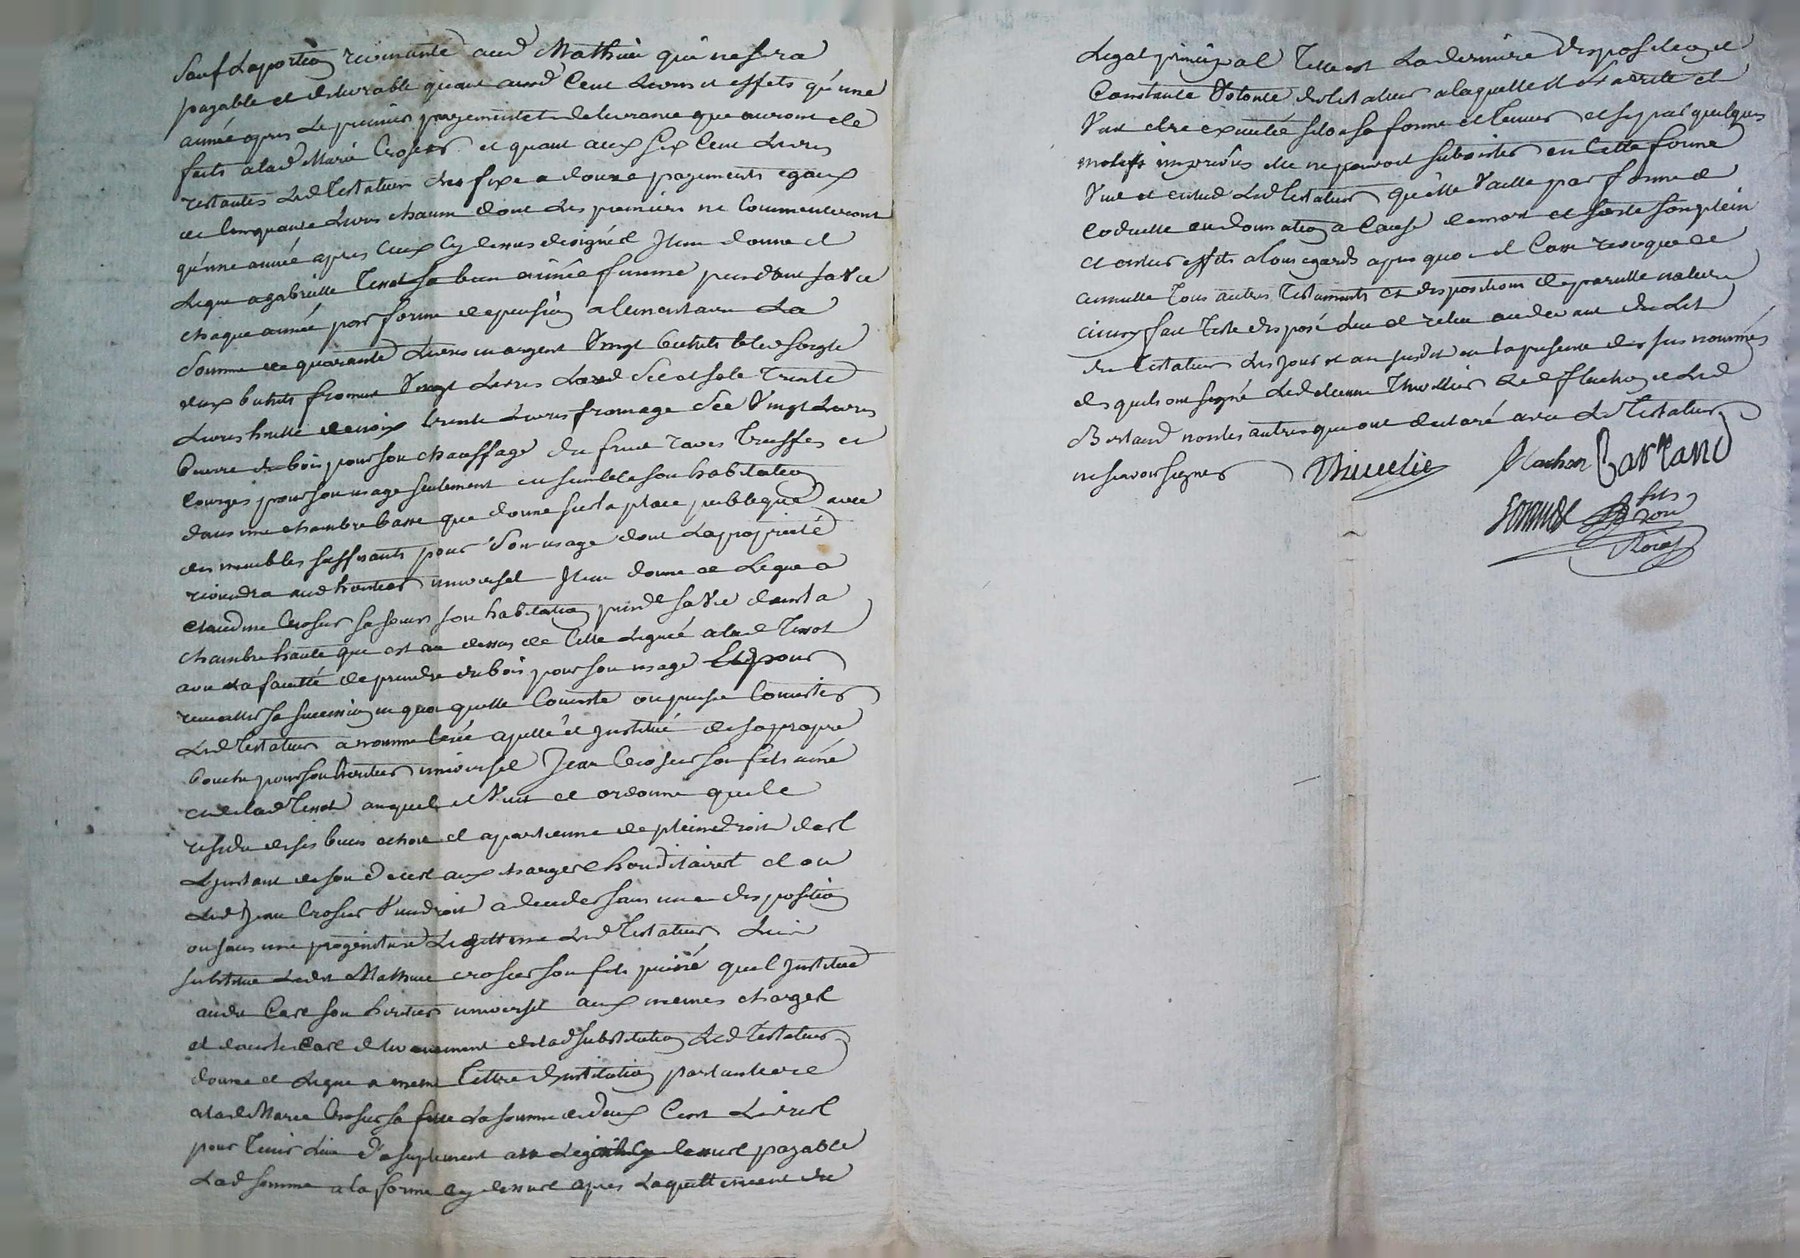 Sauf La portion reventente aud Mathieu qui ne sera
payable et delivrable quant aud Cent Livres et effets qu'une
année apres Le premier payement et delivrance que auront ete
faits a lad Marie Crosier et quant aux Six Cent Livres
restantes Led Testateur Les fixe a douze payements egaux
de Cinquante Livres chacun dont Les premiers ne Commenceront
qu'une année apres Ceux Cy dessus designés Item donne et
Legue a gabrielle Tissot Sa bien aimée femme pendant Sa Vie
chaque année par forme de pension alimentaire La
Somme de quarante Livres en argent Vingt bichets bled Seigle
deux bichets froment Vingt Livres Lard Sec et Salé Trente
Livres huille de noix trente Livres fromage Sec Vingt Livres
beurre du bois pour Son chauffage du fruit raves Treuffes et
Courges pour Son usage Seulement ensemble Son habitation
dans une chambre basse que donne Sur la place publique avec
des meubles Suffisants pour Son usage dont La proprieté
reviendra aud heritier universel Item donne et Legue a
Claudine Crosier Sa Soeur Son habitation pend Sa Vie dans La
chambre haute que est au dessus de Celle Leguée a lad Tissot
avec La faculté de prendre du bois pour Son usage Et pour
recueillir Sa Succession en quoi quelle Consiste ou puisse Consister
Led Testateur a nommé Créé apellé et Institué de Sa propre
bouche pour Son heritier universel Jean Crosier Son fils ainé
et de lad Tissot auquel il Veut et ordonne que Le
residu de Ses biens echoie et apartienne de plein droit des
L'instant de Son deces aux charges hereditaires et ou
Led Jean Crosier Viendroit a deceder Sans une disposition
ou Sans une progeniture Legittime Led Testateur Lui
Substitue Ledit Mathieu Crosier Son fils puisné quel Institue
aud Cas Son heritier universel aux memes charges
et dans Le Cas d'evenement de lad Substitution Led Testateur
donne et Legue a meme Tittre d'institution particuliere
a lad Marie Crosier Sa fille La Somme de deux Cent Livres
pour Tenir Lieu d'a Suplement au Legs Cy dessus payable
Lad Somme a la forme Cy dessus apres L'aquittement du
Legat principal Telle est La derniere disposition et
Constante Volonté du testateur a laquelle il S'arrete et
Veut etre executée Selon Sa forme et Teneur et Si par quelques
motifs imprévus elle ne pouvoit Subsister en Cette forme
Veut et entend Led Testateur qu'elle Vaille par forme de
Codicille ou donation a Cause de mort et Sorte Son plein
et entier effet a tous egards apres quoi il Casse revoque et
annulle Tous autres Testaments et dispositions de pareille nature
ainsy fait Testé disposé Lu et relu au devant du Lit
du Testateur Les Jour et an Susdit en la presence des Sus nommés
desquels ont Signé Led etienne Thiollier Led flachon et Led
Bertand non les autres que ont declaré avec Led Testateur
ne Scavoir Signer Thiollier flachon Bartand